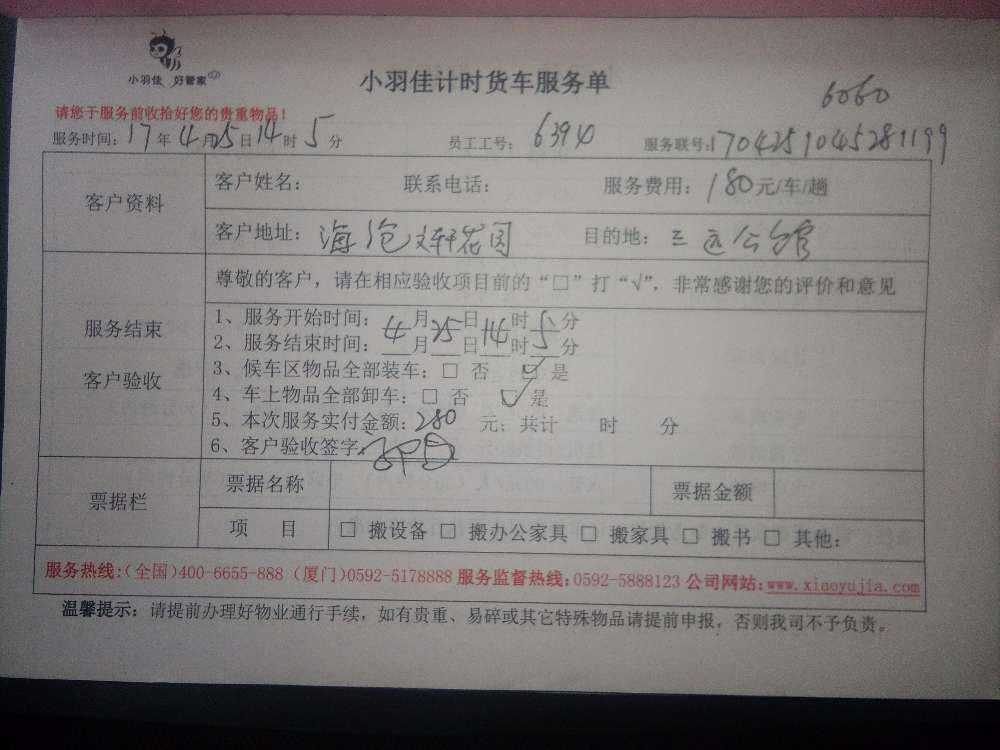 小羽佳 好管家
小羽佳计时货车服务单
6060
请您于服务前收拾好您的贵重物品！
服务时间：17年4月25日14时5分 员工工号： 服务联号：1704251045281199
客户资料
客户姓名： 联系电话： 服务费用：180元/车/趟
客户地址：海沧文轩花园 目的地：三远公馆
服务结束
客户验收
尊敬的客户，请在相应验收项目前的“□”打“√”，非常感谢您的评价和意见
1、服务开始时间：4月25日14时5分
2、服务结束时间：__月__日__时__分
3、候车区物品全部装车：□ 否 ☑ 是
4、车上物品全部卸车：□ 否 ☑ 是
5、本次服务实付金额：280 元；共计 时 分
6、客户验收签字：
票据栏
票据名称 票据金额
项 目 □ 搬设备 □ 搬办公家具 □ 搬家具 □ 搬书 □ 其他：
服务热线：（全国）400-6655-888（厦门）0592-5178888 服务监督热线：0592-5888123 公司网站：www.xiaoyujia.com
温馨提示：请提前办理好物业通行手续，如有贵重、易碎或其它特殊物品请提前申报，否则我司不予负责。